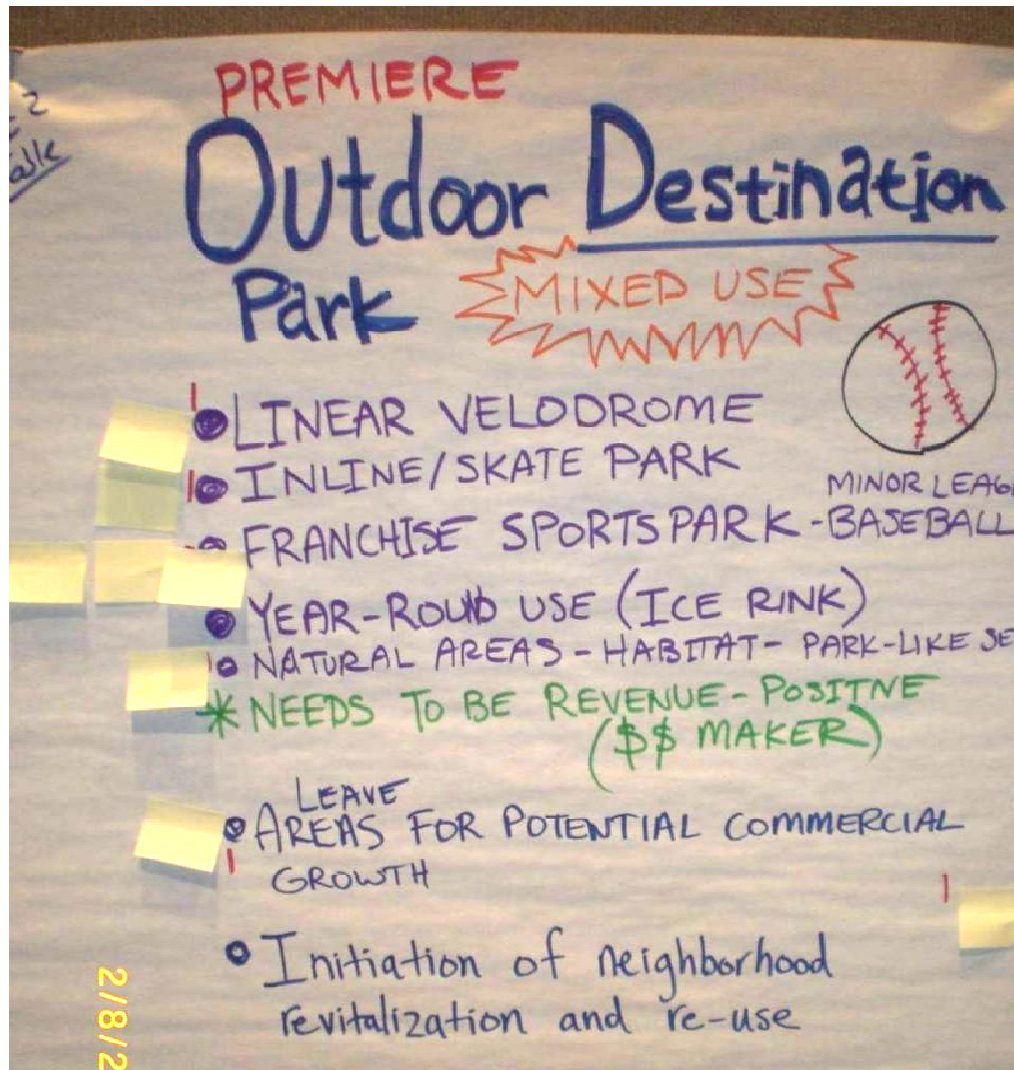 PREMIERE
Outdoor Destination
Park MIXED USE
• LINEAR VELODROME
• INLINE/SKATE PARK
MINOR LEAG
• FRANCHISE SPORTS PARK - BASEBALL
• YEAR-ROUND USE (ICE RINK)
• NATURAL AREAS - HABITAT - PARK-LIKE SE
* NEEDS TO BE REVENUE-POSITIVE
($$ MAKER)
LEAVE
• AREAS FOR POTENTIAL COMMERCIAL
GROWTH
• Initiation of neighborhood
revitalization and re-use
2/8/2